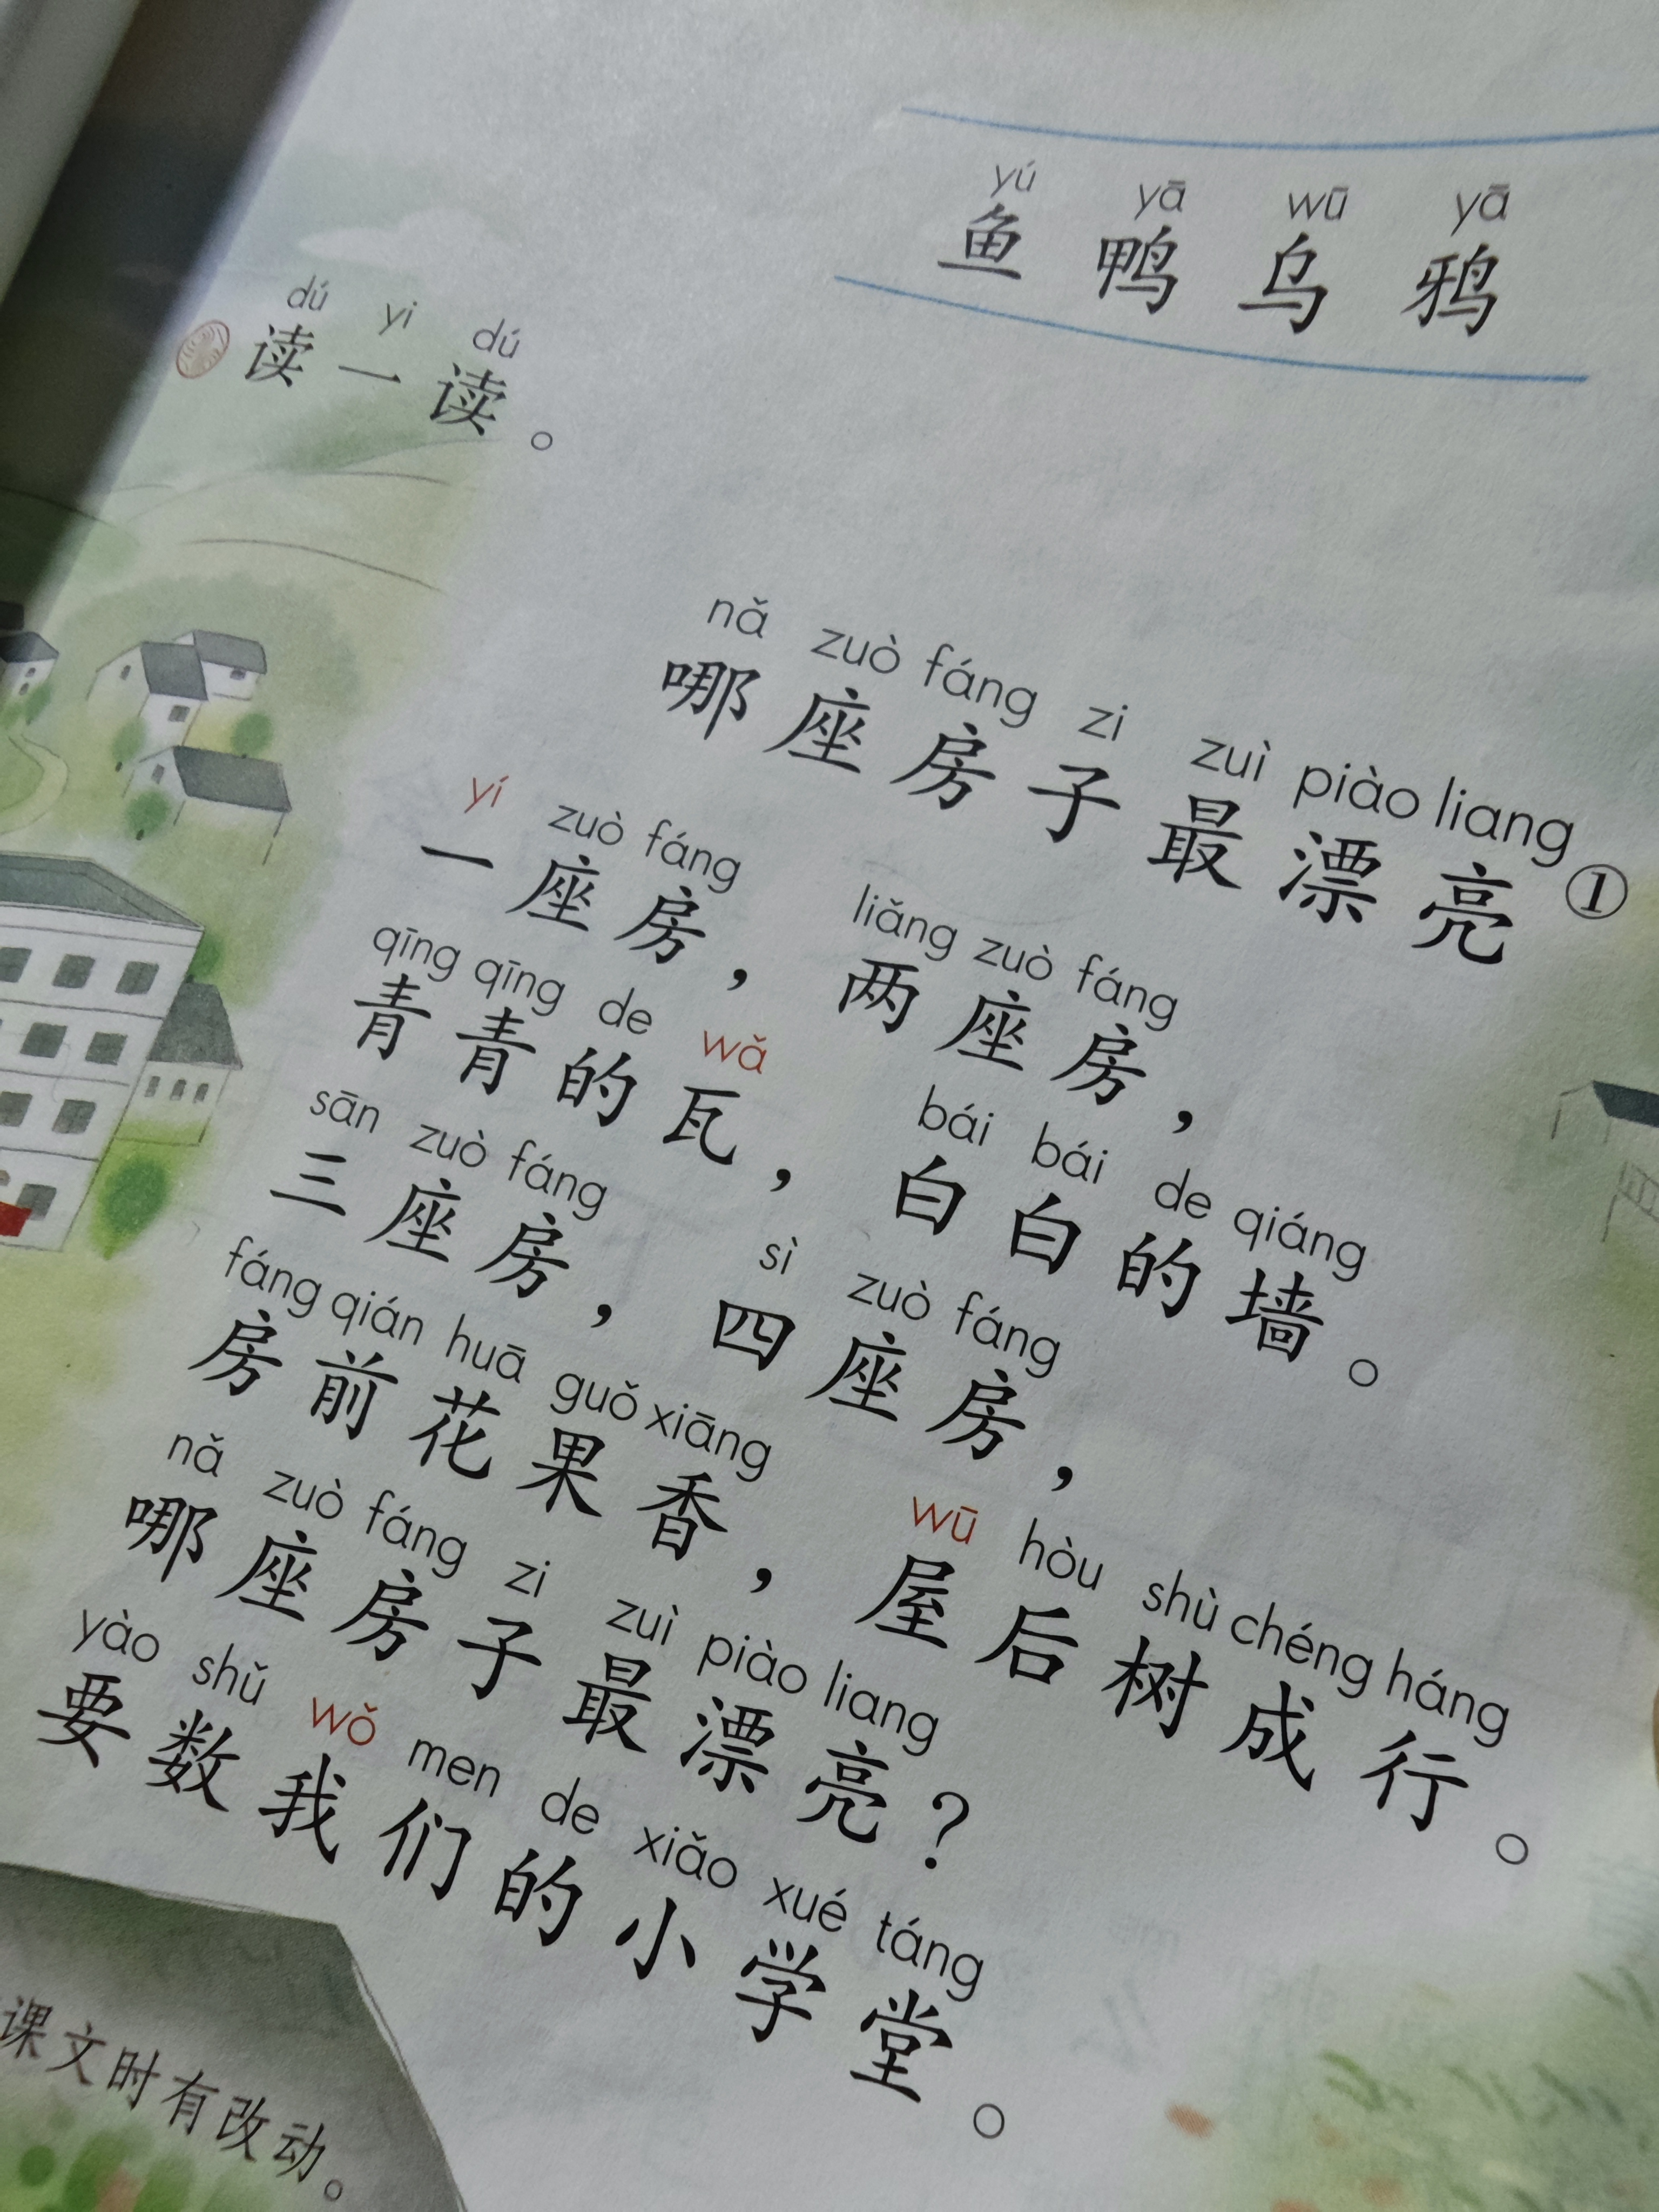 yú yā wū yā
鱼 鸭 乌 鸦
dú yi dú
读一读。
nǎ zuò fáng zi zuì piào liang
哪座房子最漂亮①
yí zuò fáng liǎng zuò fáng
一座房，两座房，
qīng qīng de wǎ bái bái de qiáng
青青的瓦，白白的墙。
sān zuò fáng sì zuò fáng
三座房，四座房，
fáng qián huā guǒ xiāng wū hòu shù chéng háng
房前花果香，屋后树成行。
nǎ zuò fáng zi zuì piào liang
哪座房子最漂亮？
yào shǔ wǒ men de xiǎo xué táng
要数我们的小学堂。
课文时有改动。